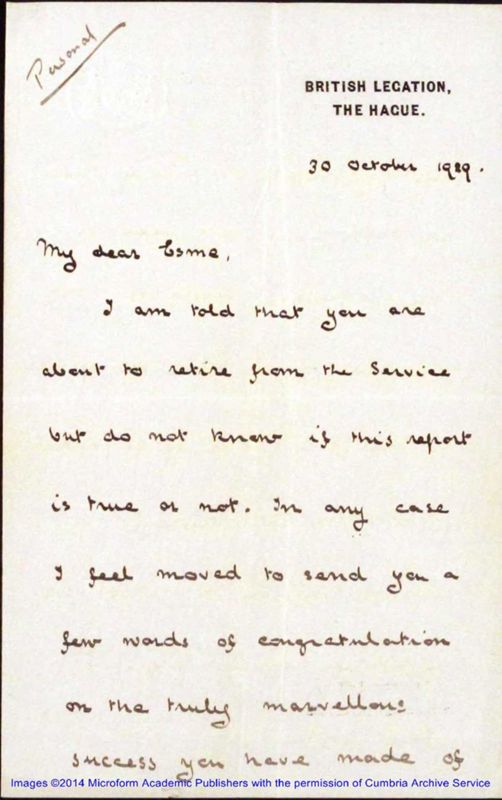 Personal
BRITISH LEGATION,
THE HAGUE.
30 October 1929.
My dear Esme,
I am told that you are
about to retire from the Service
but do not know if this report
is true or not. In any case
I feel moved to send you a
few words of congratulation
on the truly marvellous
success you have made of
Images ©2014 Microform Academic Publishers with the permission of Cumbria Archive Service